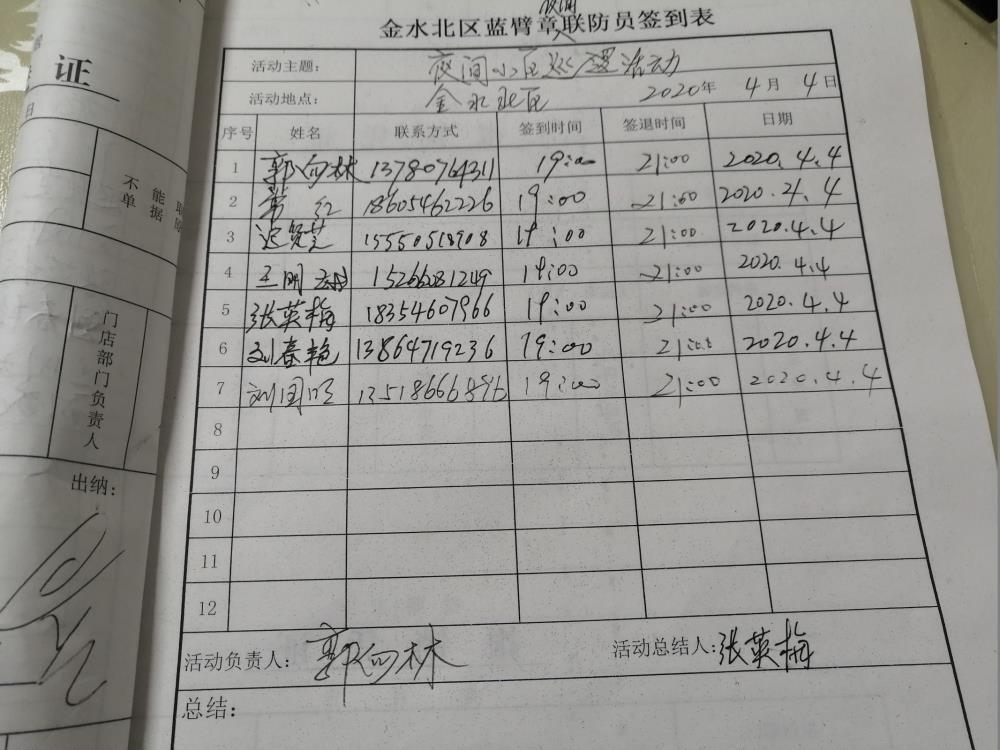 夜间
金水北区蓝臂章联防员签到表
活动主题: 夜间小区巡逻活动
活动地点: 金水北区 2020年 4月 4日
序号 姓名 联系方式 签到时间 签退时间 日期
1 郭向林 13780764311 19:00 21:00 2020.4.4
2 红 18605462226 19:00 21:00 2020.4.4
3 迟贤芝 15550518908 19:00 21:00 2020.4.4
4 王明 15266081249 19:00 21:00 2020.4.4
5 张英梅 18354607966 19:00 21:00 2020.4.4
6 刘春艳 13864719236 19:00 21:00 2020.4.4
7 刘国明 13518666896 19:00 21:00 2020.4.4
8
9
10
11
12
活动负责人: 郭向林 活动总结人: 张英梅
总结:
证
日
不能
单据
门店部门负责人
出纳: